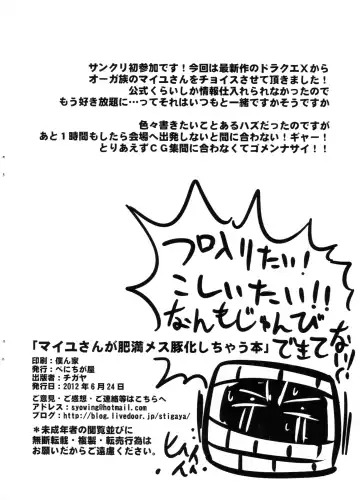 サンクリ初参加です！今回は最新作のドラクエXから
オーガ族のマイユさんをチョイスさせて頂きました！
公式くらいしか情報仕入れられなかったので
もう好き放題に…ってそれはいつもと一緒ですかそうですか
色々書きたいことあるハズだったのですが
あと１時間もしたら会場へ出発しないと間に合わない！ギャー！
とりあえずCG集間に合わなくてゴメンナサイ！！
フロ入りたい！
こしいたい！！
なんもじゅんび
できてない
「マイユさんが肥満メス豚化しちゃう本」
印刷：僕ん家
発行：べにちが屋
出版者：チガヤ
発行日：2012年6月24日
ご意見・ご感想・ご連絡等はこちらへ
アドレス：syowing@hotmail.com
ブログ：http://blog.livedoor.jp/stigaya/
＊未成年者の閲覧並びに
無断転載・複製・転売行為は
お願いだからご遠慮ください。
ヒィィィ